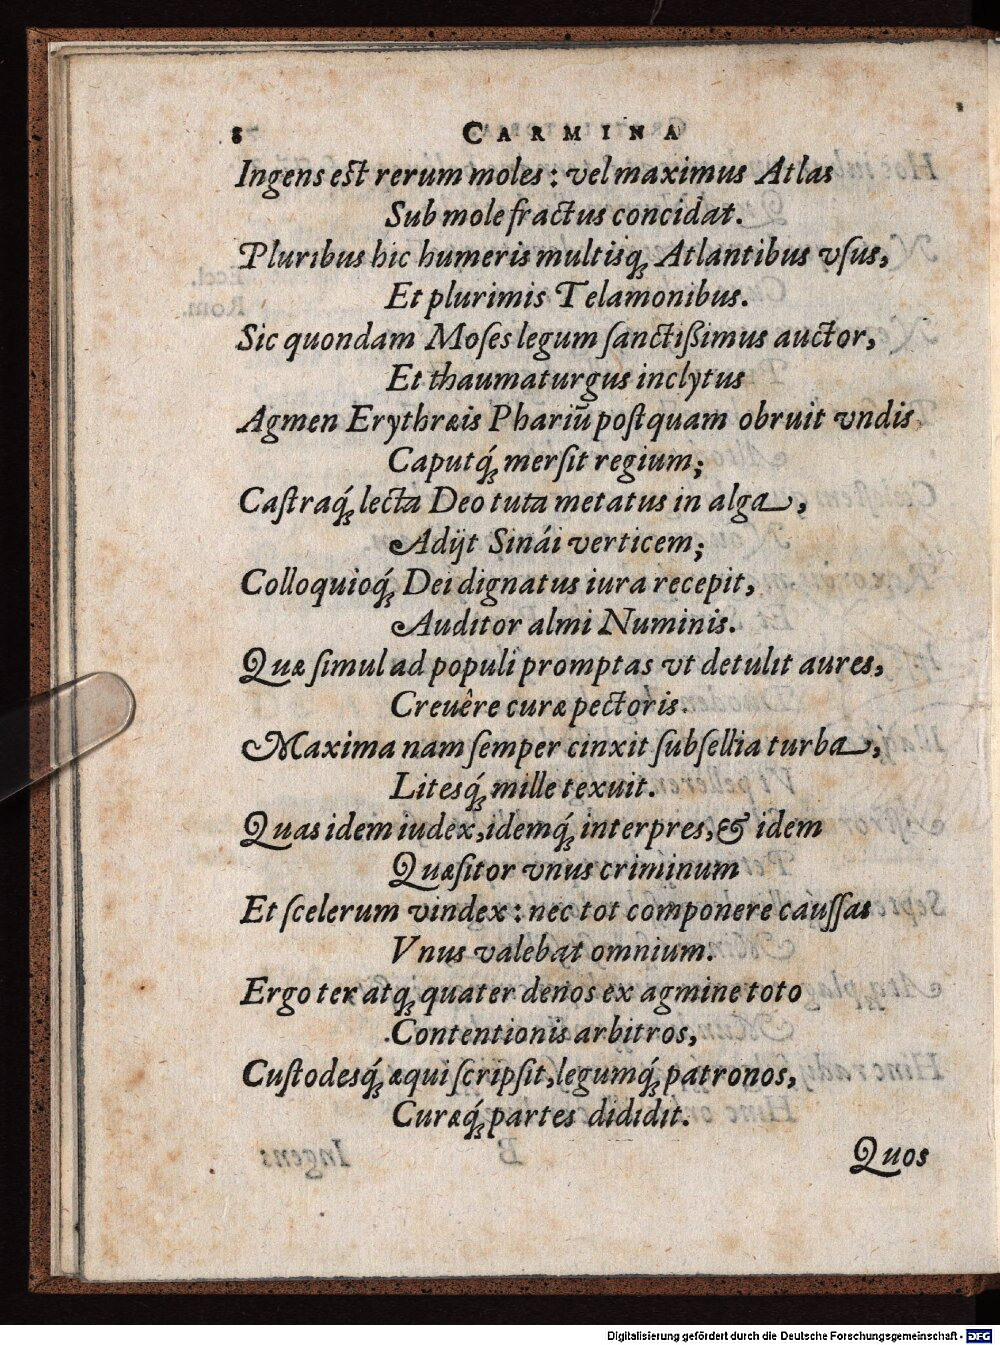 8 CARMINA
Ingens est rerum moles: vel maximus Atlas
Sub mole fractus concidat.
Pluribus hic humeris multisq́; Atlantibus vſus,
Et plurimis Telamonibus.
Sic quondam Moſes legum ſanctißimus auctor,
Et thaumaturgus inclytus
Agmen Erythræis Phariū poſtquam obruit vndis
Caputq́; merſit regium;
Caſtraq́; lecta Deo tuta metatus in alga,
Adijt Sinái verticem;
Colloquioq́; Dei dignatus iura recepit,
Auditor almi Numinis.
Quæ ſimul ad populi promptas vt detulit aures,
Creuêre curæ pectoris.
Maxima nam ſemper cinxit ſubſellia turba,
Litesq́; mille texuit.
Quas idem iudex, idemq́; interpres, & idem
Quæſitor vnus criminum
Et ſcelerum vindex: nec tot componere cauſſas
Vnus valebat omnium.
Ergo ter atq; quater denos ex agmine toto
Contentionis arbitros,
Cuſtodesq́; æqui ſcripſit, legumq́; patronos,
Curæq́; partes dididit.
Quos
Digitalisierung gefördert durch die Deutsche Forschungsgemeinschaft - DFG